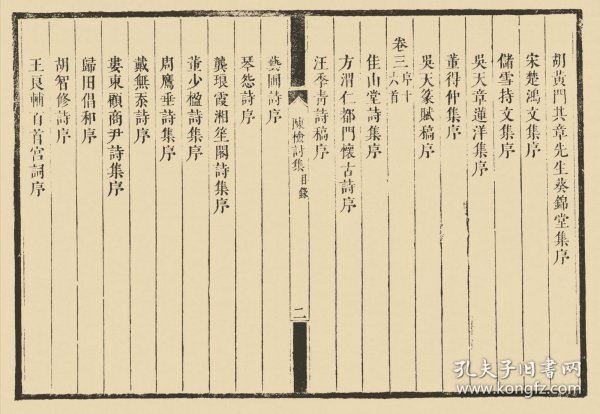 胡黃門其章先生葵錦堂集序
宋楚鴻文集序
儲雪持文集序
吳天章蓮洋集序
董得仲集序
吳天篆賦稿序
卷三序十六首
佳山堂詩集序
方渭仁都門懷古詩序
汪季青詩稿序
陳檢討集目錄
二
藝圃詩序
琴怨詩序
龔琅霞湘笙閣詩集序
董少楹詩集序
周鷹垂詩集序
戴無忝詩序
婁東顧商尹詩集序
歸田倡和序
胡智修詩序
王良輔百首宮詞序
孔夫子旧书网
www.kongfz.com